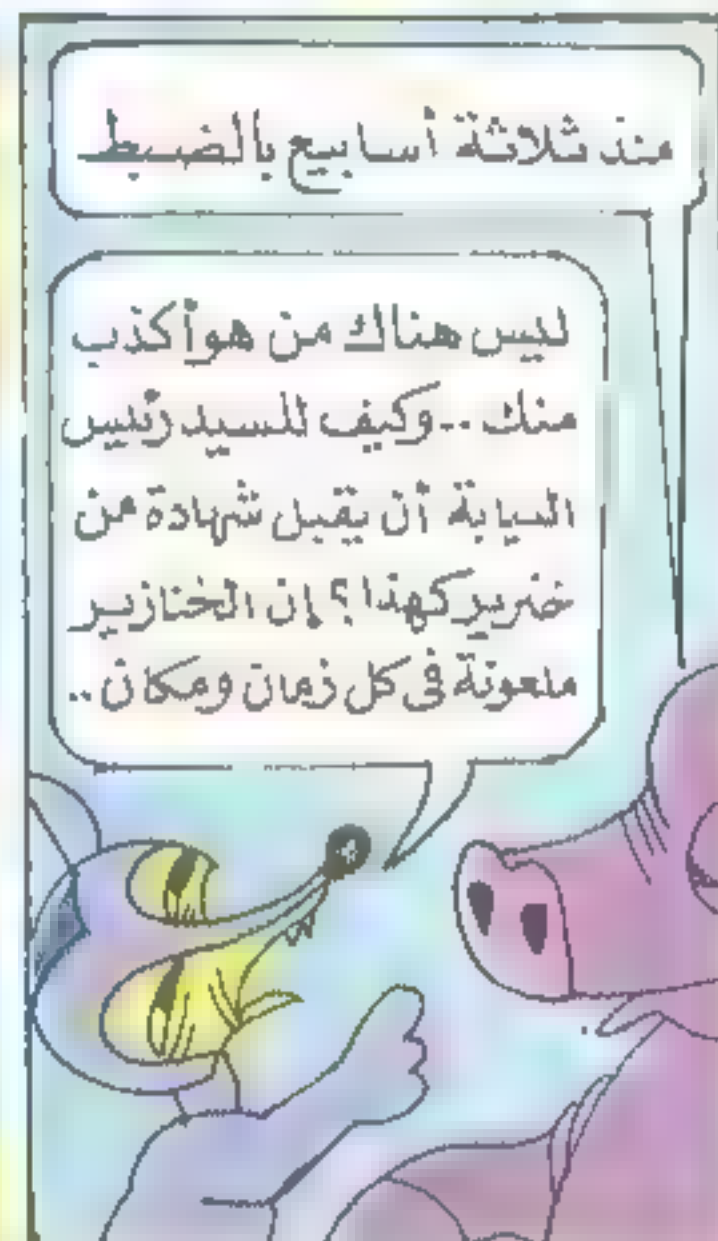 منذ ثلاثة أسابيع بالضبط
ليس هناك من هو أكذب
منك .. وكيف للسيد رئيس
السيابة أن يقبل شهادة من
خنزير كهذا ؟ إن الخنازير
ملعونة فى كل زمان ومكان ..